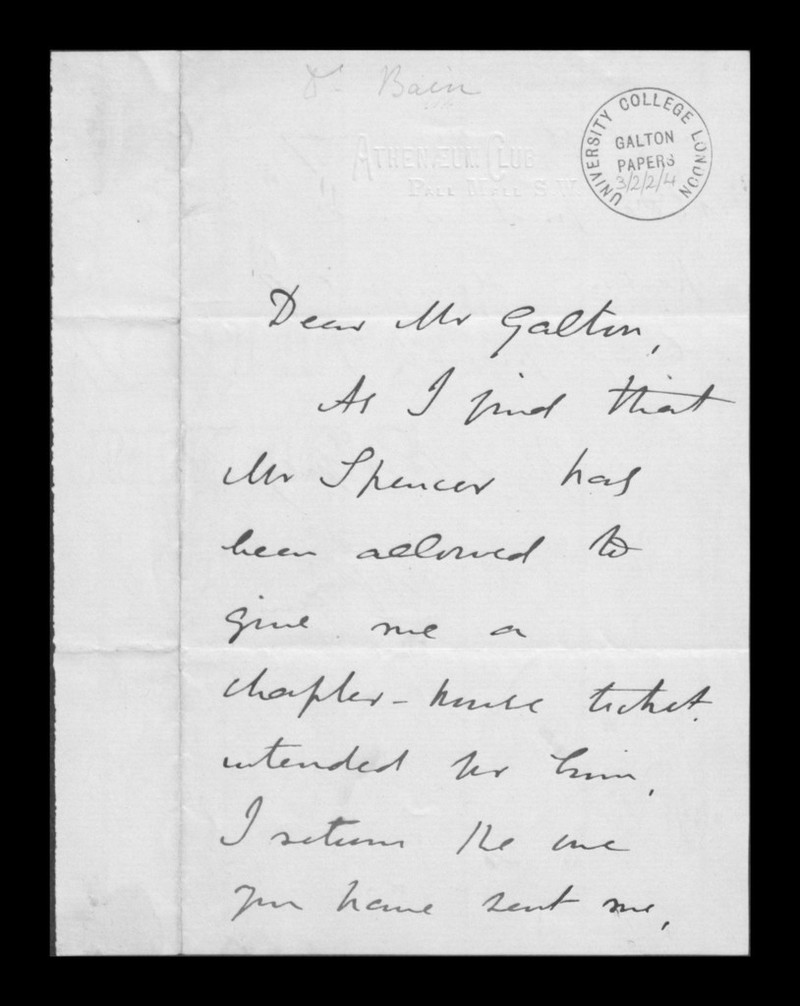 Dr. Bain
ATHENÆUM CLUB
PALL MALL S.W.
UNIVERSITY COLLEGE LONDON
GALTON
PAPERS
3/2/2/4
Dear Mr Galton,
As I find that
Mr Spencer has
been allowed to
give me a
chapter-house ticket
intended for him,
I return the one
you have sent me,